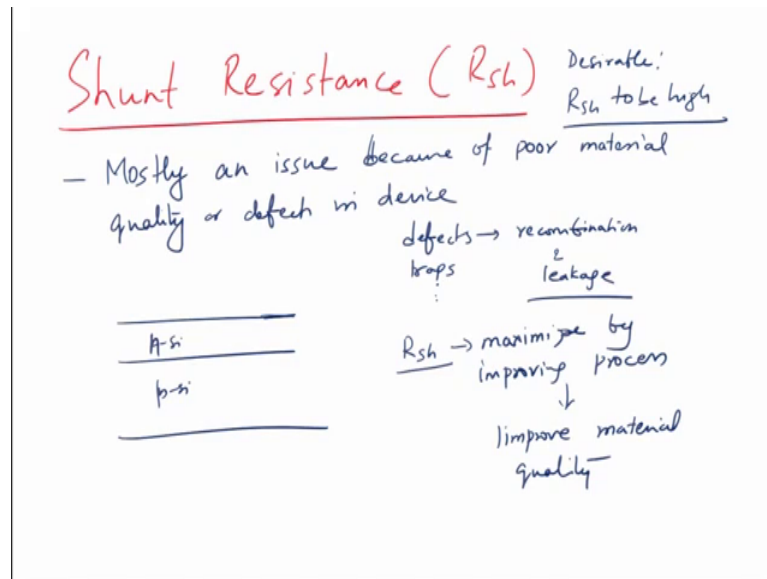 Shunt Resistance (Rsh)
Desirable:
Rsh to be high
– Mostly an issue because of poor material
quality or defect in device
defects → recombination
traps
&
leakage
⋮
n-Si
p-Si
Rsh → maximize by
improving process
↓
improve material
quality